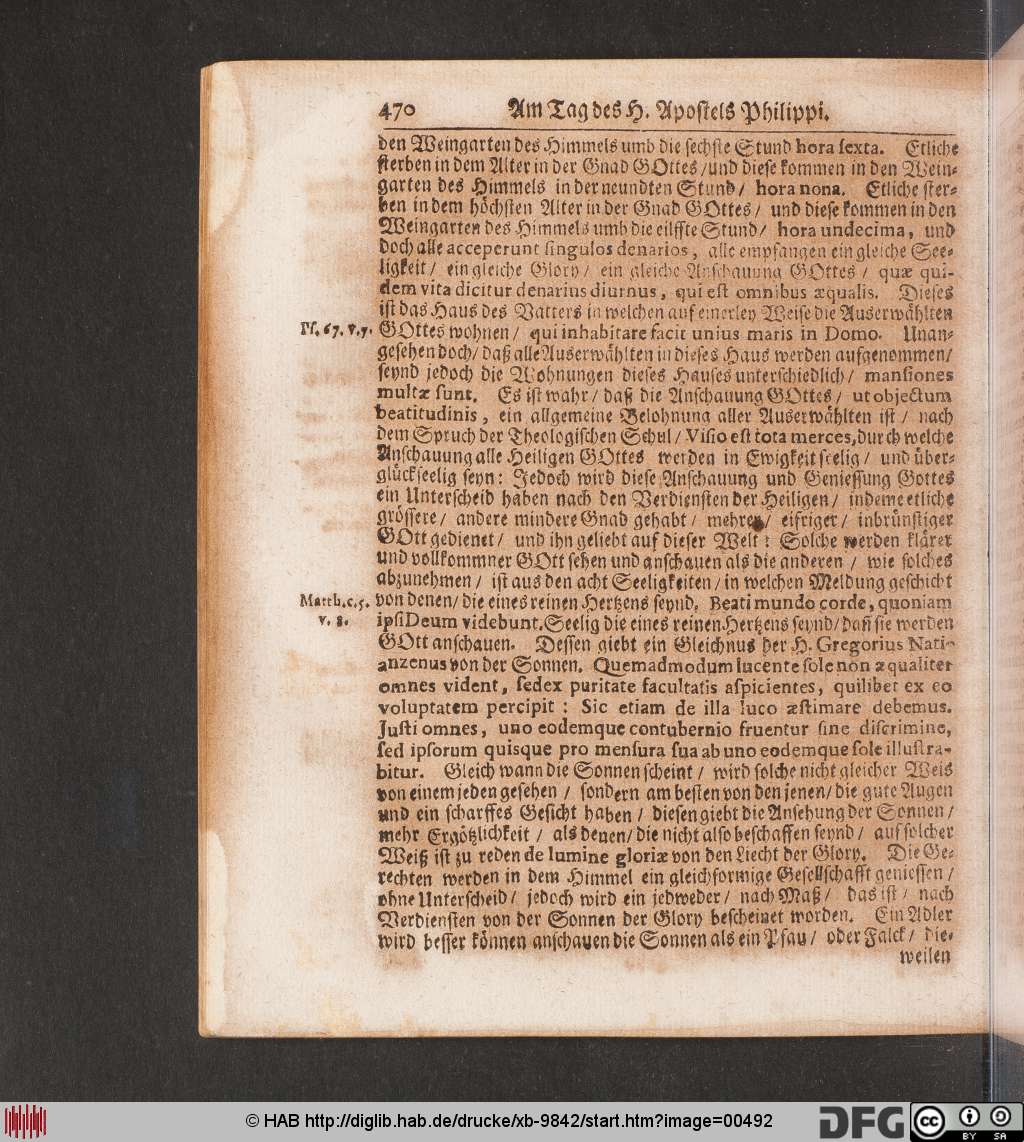 470 Am Tag des H. Apostels Philippi.
den Weingarten des Himmels umb die sechste Stund hora sexta. Etliche
sterben in dem Alter in der Gnad GOttes / und diese kommen in den Wein-
garten des Himmels in der neundten Stund / hora nona. Etliche ster-
ben in dem höchsten Alter in der Gnad GOttes / und diese kommen in den
Weingarten des Himmels umb die eilffte Stund / hora undecima, und
doch alle acceperunt singulos denarios, alle empfangen ein gleiche See-
ligkeit / ein gleiche Glory / ein gleiche Anschauung GOttes / quæ qui-
dem vita dicitur denarius diurnus, qui est omnibus æqualis. Dieses
ist das Haus des Vatters in welchen auf einerley Weise die Auserwählten
Ps. 67. v. 7. GOttes wohnen / qui inhabitare facit unius maris in Domo. Unan-
gesehen doch / daß alle Auserwählten in dieses Haus werden aufgenommen /
seynd jedoch die Wohnungen dieses Hauses unterschiedlich / mansiones
multæ sunt. Es ist wahr / daß die Anschauung GOttes / ut objectum
beatitudinis, ein allgemeine Belohnung aller Auserwählten ist / nach
dem Spruch der Theologischen Schul / Visio est tota merces, durch welche
Anschauung alle Heiligen GOttes werden in Ewigkeit seelig / und über-
glückseelig seyn: Jedoch wird diese Anschauung und Geniessung Gottes
ein Unterscheid haben nach den Verdiensten der Heiligen / indeme etliche
grössere / andere mindere Gnad gehabt / mehrer / eifriger / inbrünstiger
GOtt gedienet / und ihn geliebt auf dieser Welt: Solche werden klärer
und vollkommner GOtt sehen und anschauen als die anderen / wie solches
abzunehmen / ist aus den acht Seeligkeiten / in welchen Meldung geschicht
Matth. c. 5. von denen / die eines reinen Hertzens seynd. Beati mundo corde, quoniam
v. 8. ipsi Deum videbunt. Seelig die eines reinen Hertzens seynd / daß sie werden
GOtt anschauen. Dessen giebt ein Gleichnus der H. Gregorius Nati-
anzenus von der Sonnen. Quemadmodum lucente sole non æqualiter
omnes vident, sed ex puritate facultatis aspicientes, quilibet ex eo
voluptatem percipit: Sic etiam de illa luco æstimare debemus.
Justi omnes, uno eodemque contubernio fruentur sine discrimine,
sed ipsorum quisque pro mensura sua ab uno eodemque sole illustra-
bitur. Gleich wann die Sonnen scheint / wird solche nicht gleicher Weis
von einem jeden gesehen / sondern am besten von den jenen / die gute Augen
und ein scharffes Gesicht haben / diesen giebt die Ansehung der Sonnen /
mehr Ergötzlichkeit / als denen / die nicht also beschaffen seynd / auf solcher
Weiß ist zu reden de lumine gloriæ von den Liecht der Glory. Die Ge-
rechten werden in dem Himmel ein gleichformige Gesellschafft geniessen /
ohne Unterscheid / jedoch wird ein jedweder / nach Maß / das ist / nach
Verdiensten von der Sonnen der Glory bescheinet worden. Ein Adler
wird besser können anschauen die Sonnen als ein Pfau / oder Falck / die-
weilen
© HAB http://diglib.hab.de/drucke/xb-9842/start.htm?image=00492
DFG
cc BY SA